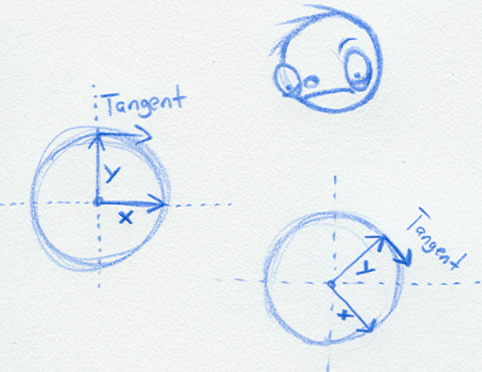 Tangent
Y
X
Tangent
Y
X